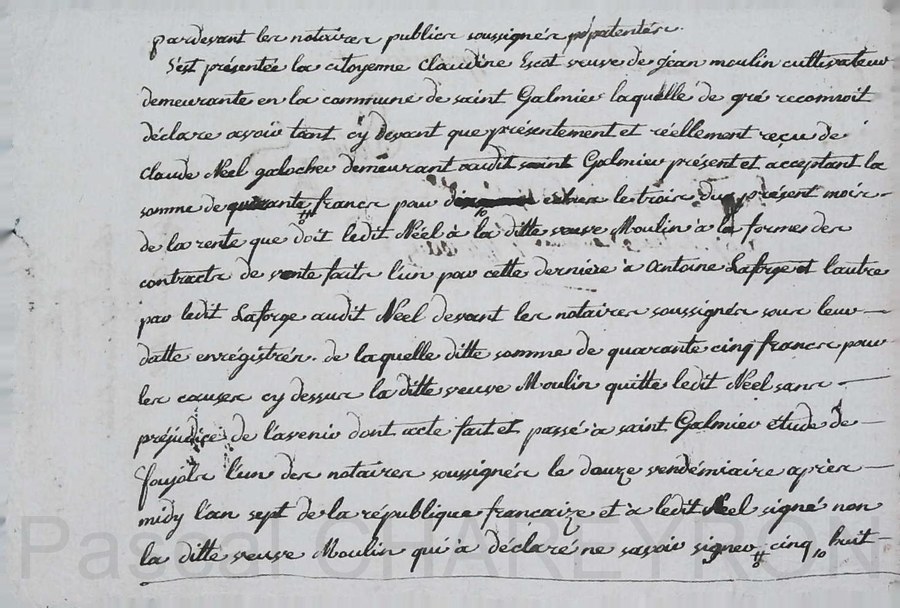 pardevant les notaires publics soussignés patentés.
S'est présentée la citoyenne Claudine Escot veuve de jean moulin cultivateur
demeurante en la commune de saint Galmier laquelle de gré reconnoit
déclare avoir tant cy devant que présentement et réellement reçu de
Claude Néel galocher demeurant audit saint Galmier présent et acceptant la
somme de quarante francs pour échus le trois du présent mois
de la rente que doit ledit Néel à la ditte veuve Moulin à la forme des
contracts de vente faits l'un par cette derniere à Antoine Laforge et l'autre
par ledit Laforge audit Neel devant les notaires soussignés sous leur
datte enrégistrés. de laquelle ditte somme de quarante cinq francs pour
les causes cy dessus la ditte veuve Moulin quitte ledit Neel sans
préjudice de l'avenir dont acte fait et passé à saint Galmier étude de
l'un des notaires soussignés le douze vendémiaire après
midy l'an sept de la république francaize et à ledit Neel signé non
la ditte veuve Moulin qui à déclaré ne savoir signer # cinq huit
Pascal CHAREYRON